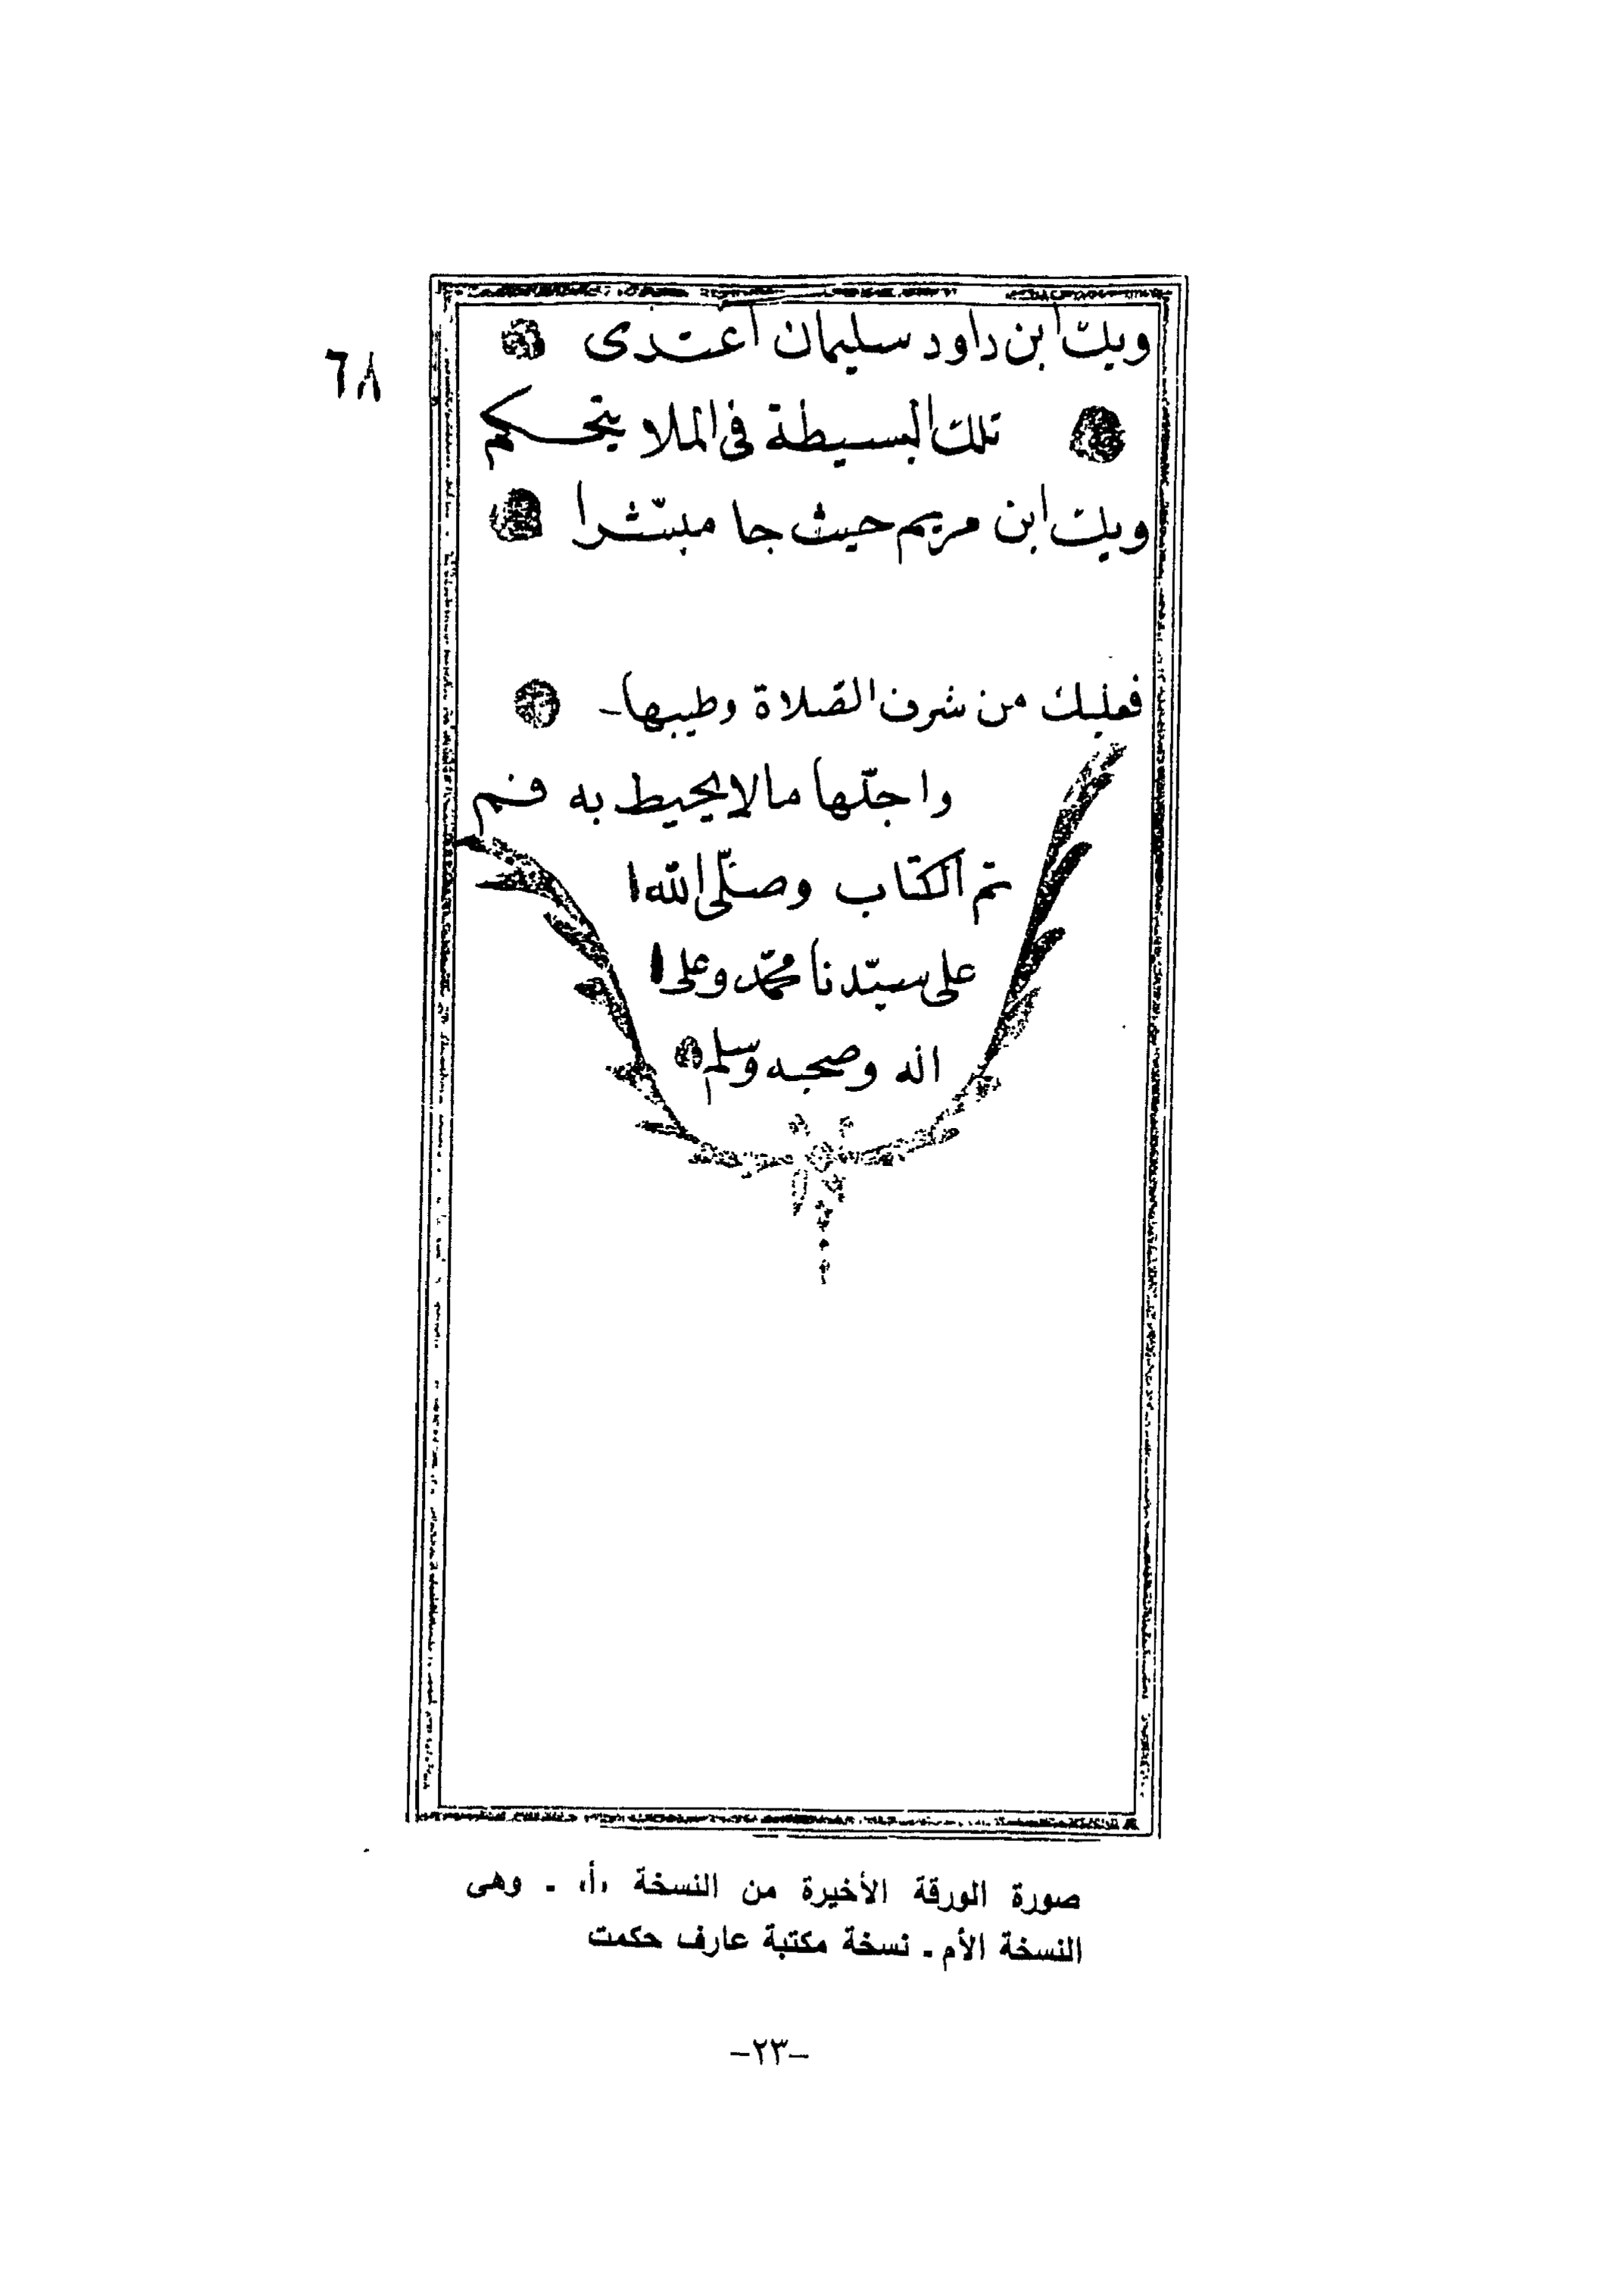 ٦٨
وبك ابن داود سليمان اعتدى
تلك البسيطة فى الملا يتحكم
وبك ابن مريم حيث جا مبشرا
فعليك من شرف الصلاة وطيبها
واجلّها مالا يحيط به فم
تم الكتاب وصلّى الله
على سيّدنا محمّد وعلى
اله وصحبه وسلم
صورة الورقة الأخيرة من النسخة «أ» - وهى
النسخة الأم - نسخة مكتبة عارف حكمت
-٢٣-